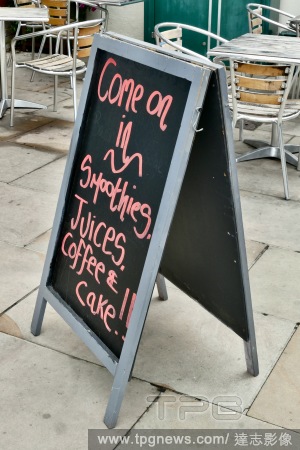 Come on
in
Smoothies.
Juices.
Coffee &
Cake.!!
TPG
www.tpgnews.com/ 達志影像